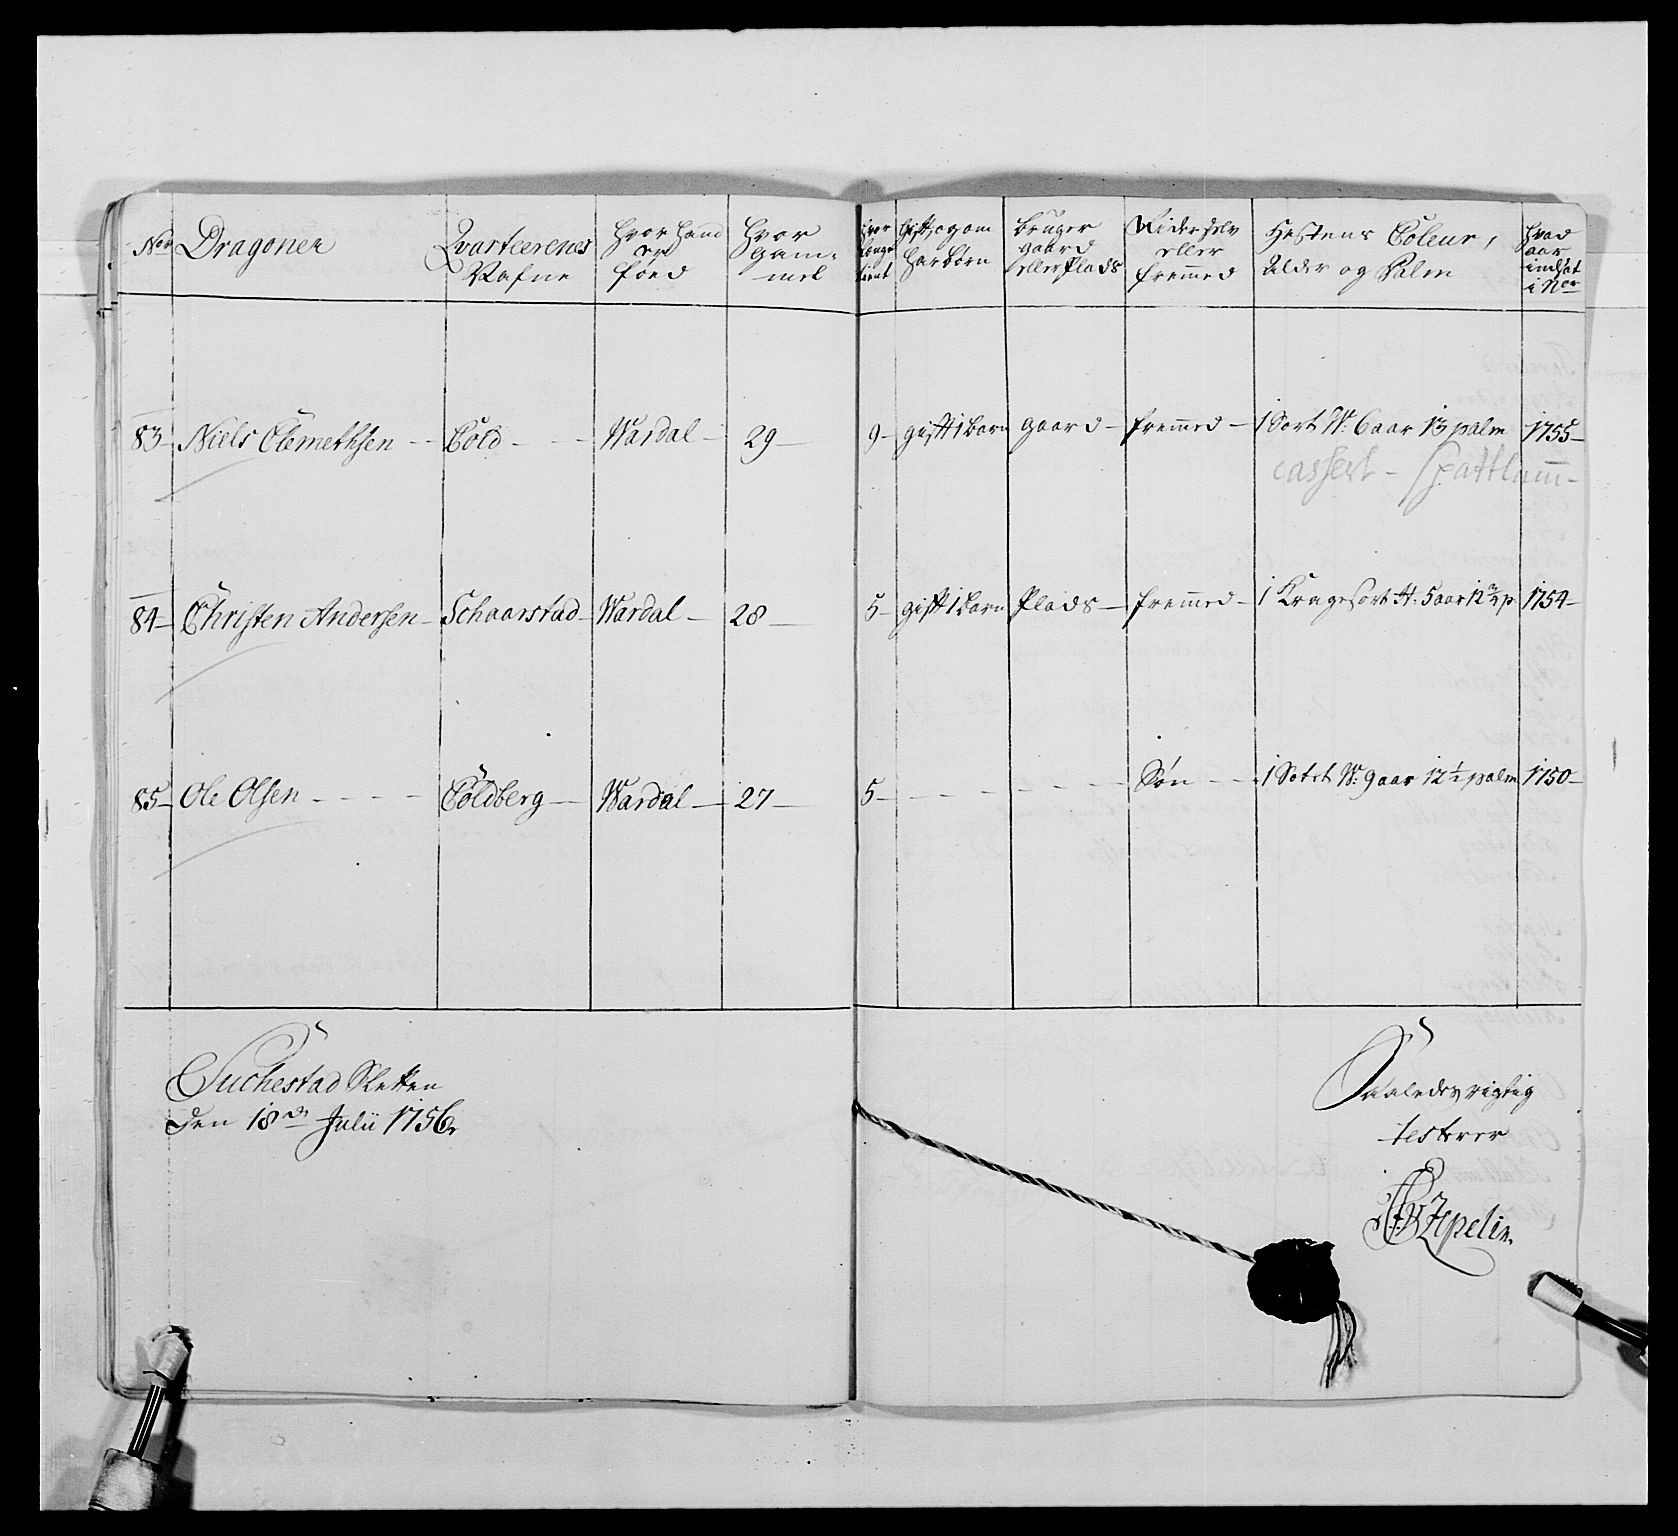 No Dragoner Qvarteerenes Nafne Hvor Hand er föed Hvor gam- mel Hvor længe tient gift, og om har börn bruger gaard eller Plads Rider selv eller fremmed Hestens Coleur, Alder og Palm Hvad aar indsat i No
83 – Niels Clemethsen – – Cold – – Wardal – 29 – 9 – gift 1 barn gaard – fremmed – 1 Sort W: 6 aar 13 palm 1755 –
cassert – Spattlamm –
84 – Christen Andersen – Schaarstad – Wardal – 28 – 5 – gift 1 barn Plads – fremmed – 1 Kragesort H: 5 aar 12 3/4 p: 1754 –
85 – Ole Olsen – – – – Coldberg – Wardal – 27 – 5 – – – – – – – Søn – – 1 Sort W: 9 aar 12 1/2 palm 1750 –
Suchestad Sletten
den 18de Julii 1756
Saaledes rigtig
testerer
Zepelin.